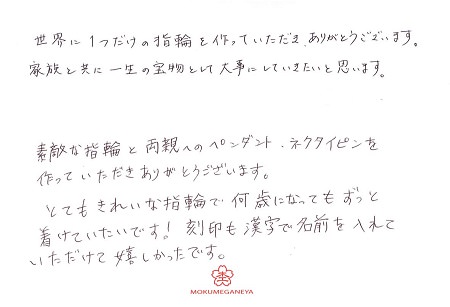 世界に1つだけの指輪を作っていただき、ありがとうございます。
家族と共に一生の宝物として大事にしていきたいと思います。
素敵な指輪と両親へのペンダント、ネクタイピンを
作っていただきありがとうございます。
とてもきれいな指輪で何歳になってもずっと
着けていたいです!刻印も漢字で名前を入れて
いただけて嬉しかったです。
MOKUMEGANEYA